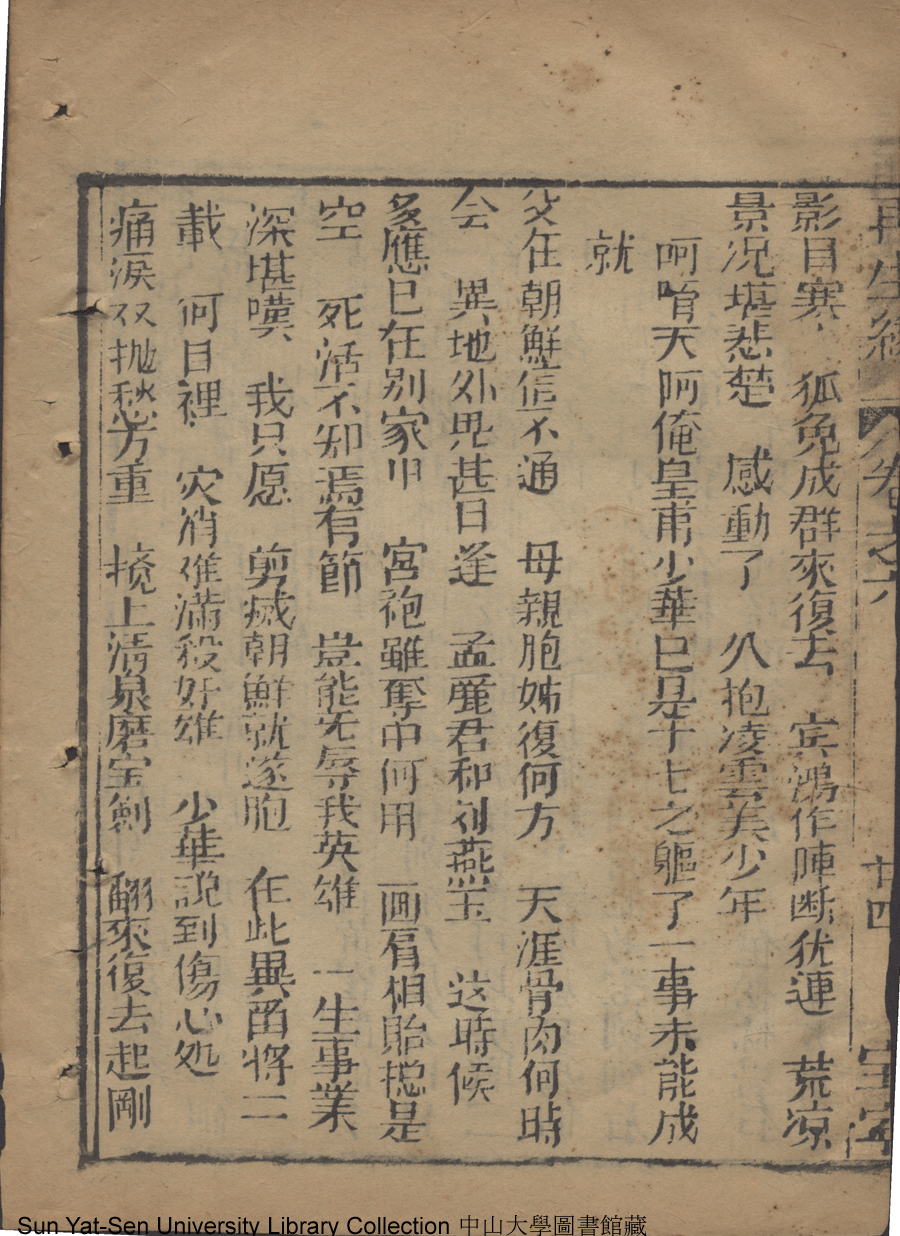 再生緣 卷之六 廿四
影目寒 狐兔成群來復去 宾鴻作陣断犹連 荒凉
景况堪悲楚 感動了 久抱凌雲美少年
呵唷天阿俺皇甫少華已是十七之軀了一事未能成
就
父在朝鮮信不通 母親胞姊復何方 天涯骨肉何時
会 異地外甚日逢 孟麗君和刘燕玉 这時候
多應已在别家 宮袍雖奪中何用 画肩相貽揔是
空 死活不知焉有節 豈能先辱我英雄 一生事業
深堪嘆 我只愿 剪滅朝鮮就遂胞 在此異畨将二
載 何目裡 灾消难满殺奸雄 少華説到傷心处
痛淚双抛愁方重 撓上清泉磨宝劍 翻來復去起剛
Sun Yat-Sen University Library Collection 中山大學圖書館藏